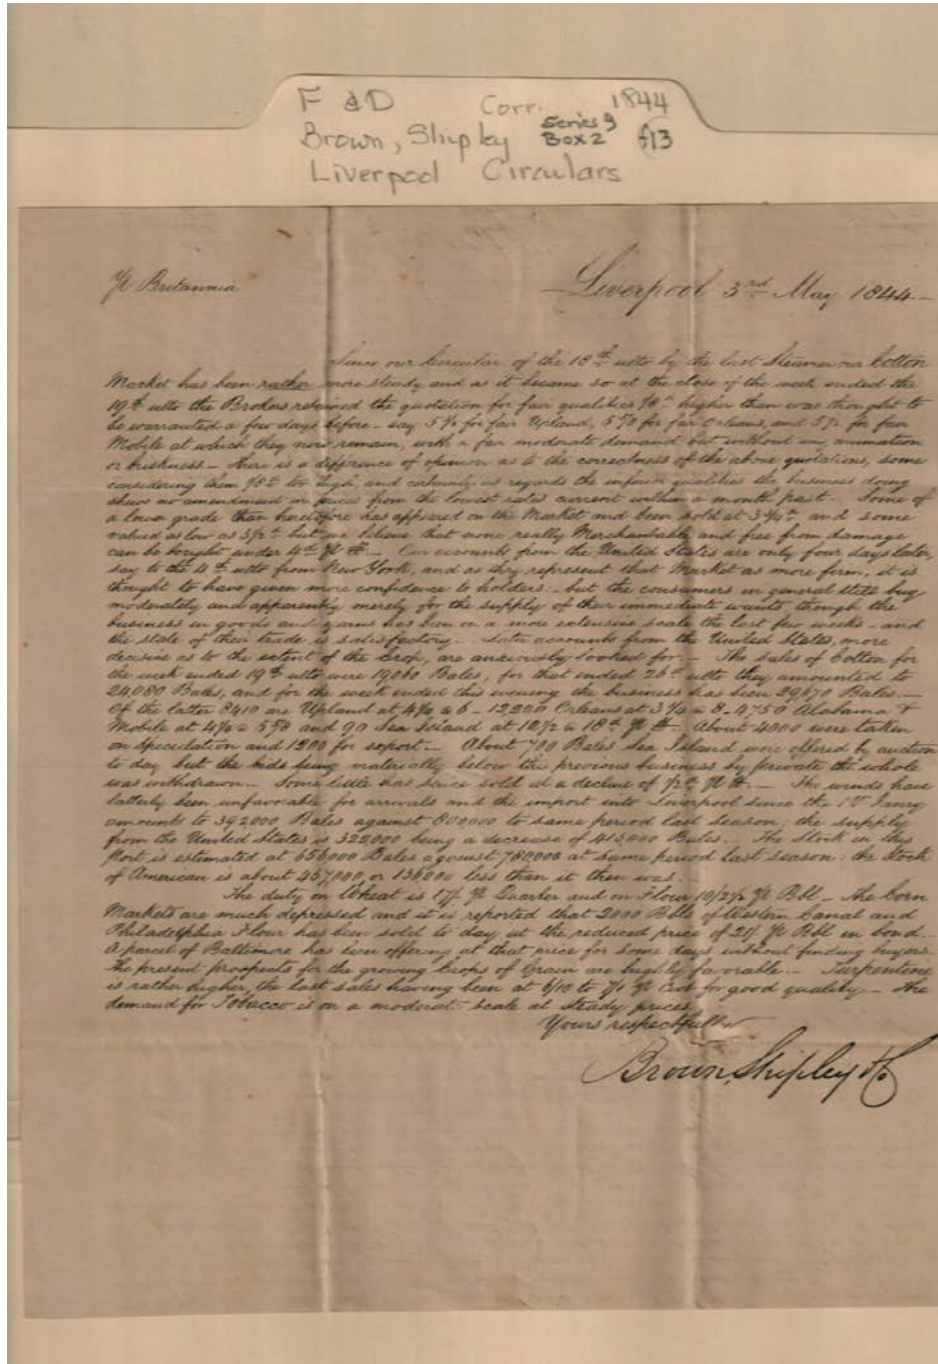 F & D Corr. 1844
Brown, Shipley Series 9 Box 2 f13
Liverpool Circulars
Britannia
Liverpool 3rd May 1844.
Since our Circular of the 18th ulto by the last Steamer our Cotton
Market has been rather more steady, and as it became so at the close of the week ended the
19th ulto the Brokers retained the quotation for fair qualities higher than was thought to
be warranted a few days before - say for fair Upland, for fair Orleans, and for fair
Mobile at which they now remain, with a fair moderate demand but without any animation
or briskness - there is a difference of opinion as to the correctness of the above quotations, some
considering them too high, and certainly as regards the inferior qualities the business doing
shews no amendment in prices from the lowest rates current within a month past. Some of
a lower grade than heretofore has appeared on the Market and been sold at and some
valued as low as but we believe that none really Merchantable and free from damage
can be bought under 4d - Our accounts from the United States are only four days later,
say to the 4th ulto from New York, and as they represent that Market as more firm, it is
thought to have given more confidence to holders: but the consumers in general still buy
moderately and apparently merely for the supply of their immediate wants though the
business in goods and yarns has been on a more extensive scale the last few weeks - and
the state of their trade is satisfactory. - Later accounts from the United States, more
decisive as to the extent of the Crop, are anxiously looked for - The sales of Cotton for
the week ended 19th ulto were 19060 Bales, for that ended 26th ulto they amounted to
24,080 Bales, and for the week ended this evening the business has been 29,670 Bales. -
Of the latter 8410 are Upland at a 6 - 12,200 Orleans at a 8 - 4750 Alabama &
Mobile at a and 90 Sea Island at 12½ a 18d - About 4000 were taken
on speculation and 1200 for export. - About 700 Bales Sea Island were offered by auction
to day but the bids being materially below the previous business by private the whole
was withdrawn - Some little has since sold at a decline of ½d - The winds have
latterly been unfavorable for arrivals and the import into Liverpool since the 1st Janry
amounts to 392000 Bales against 800000 to same period last season; the supply
from the United States is 322,000 being a decrease of Bales. The Stock in this
Port is estimated at Bales against 780000 at same period last season. the Stock
of American is about 457,000, or less than it then was. -
The duty on Wheat is 17/ Quarter and on Flour 10/2½ Bbl - the Corn
Markets are much depressed and it is reported that 2000 Bbls of Western Canal and
Philadelphia Flour has been sold to day at the reduced price of Bbl in bond.
A parcel of Baltimore has been offering at that price for some days without finding buyers.
the present prospects for the growing Crops of Grain are highly favorable - Turpentine
is rather higher, the last sales having been at 6/10 to 7/1 Cwt for good quality - the
demand for Tobacco is on a moderate scale at steady prices
Yours respectfully
Brown, Shipley & Co